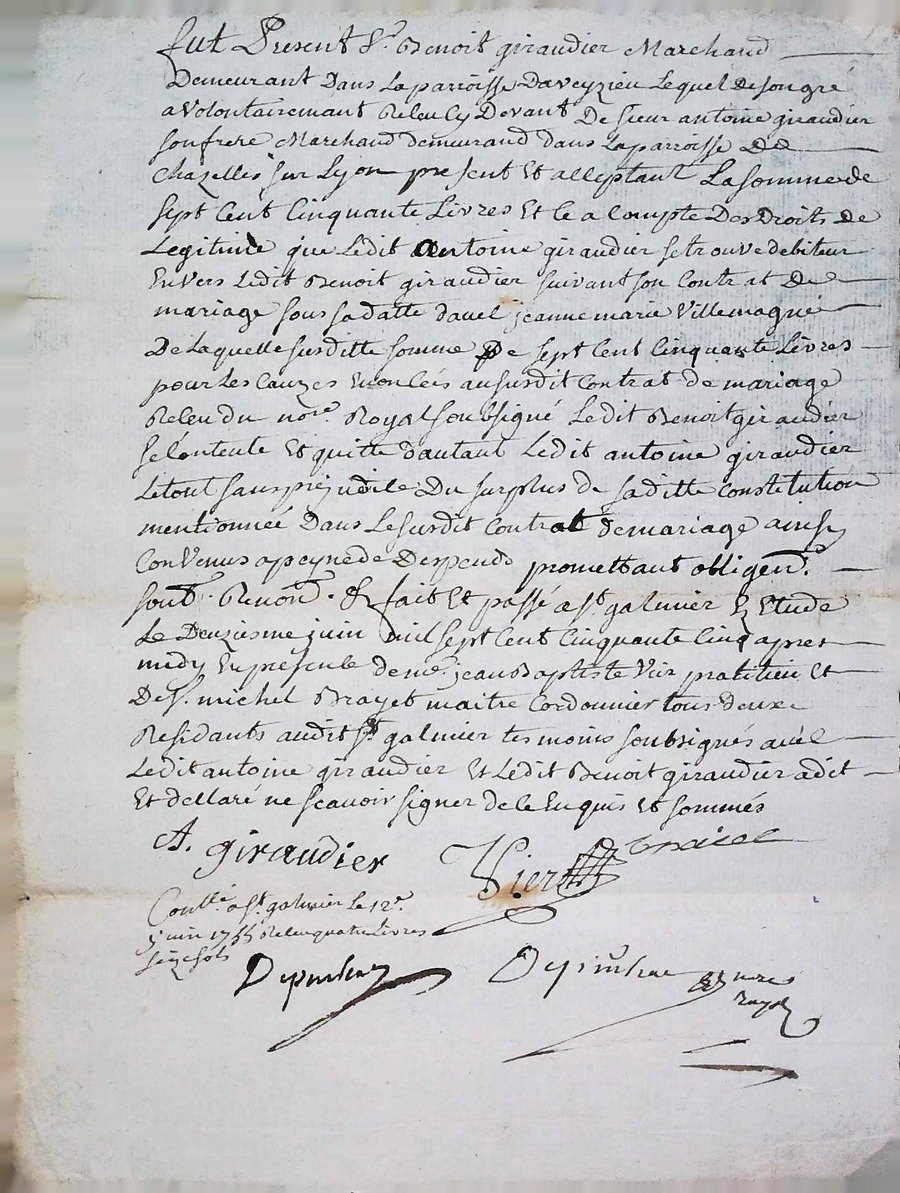 fut Present Sr. Benoit giraudier Marchand
Demeurant Dans La parroisse Daveyzieu Lequel de son gré
a Volontairemant Releu cy Devant De sieur antoine giraudier
son frere Marchand demeurand dans La parroisse De
Chazelles sur Lyon present Et acceptant La somme de
sept Cent Cinquante Livres Et Ce a Compte Des Droits De
Legitime que Ledit antoine giraudier se trouve debiteur
Envers Ledit Benoit giraudier suivant son Contrat De
mariage sous sa datte davec jeanne marie Villemagne
De Laquelle susditte somme De sept Cent Cinquante Livres
pour Les Cauzes Enoncéés au susdit Contrat de mariage
Receu du nore. Royal soubsigné Ledit Benoit giraudier
se Contente Et quitte dautant Ledit antoine giraudier
Le tout sans prejudice Du surplus de saditte Constitution
mentionnéé Dans Le susdit Contrat de mariage ainsy
Convenus a peyne de Despends promettant obligent.
soubt. Renont. & fait Et passé a st. galmier Ez Etude
Le Douziesme juin mil sept Cent Cinquante Cinq apres
midy En presence de me. jean Baptiste Vier pratitien Et
De sr. michel Brayet maitre Cordonnier tous deux
Residants audit st galmier tesmoins soubsignés avec
Ledit antoine giraudier Et Ledit Benoit giraudier a dit
Et declaré ne scavoir signer de ce Enquis Et sommés
A. giraudier Vier
Contlé. a st. galmier Le 12e.
juin 1755 Receu quatre Livres
seize sols
Depinhac Depinhac nore
royal